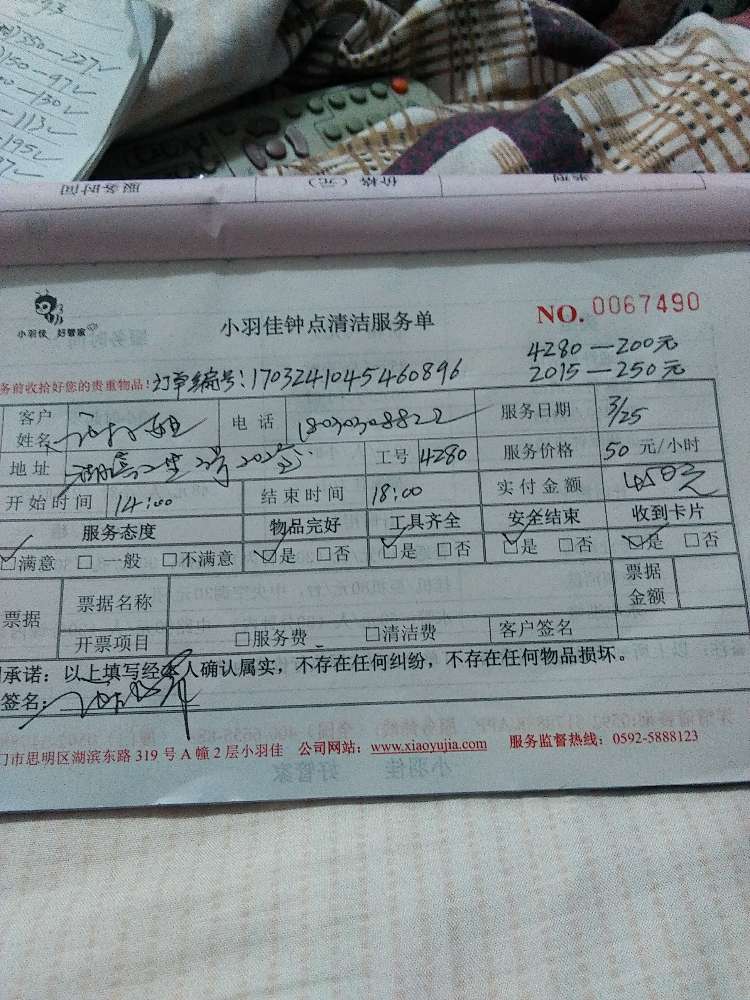 993
350-227✓
150-97✓
-130✓
-113✓
-195✓
服务时间 价格（元） 类型
小羽佳 好管家
小羽佳钟点清洁服务单
NO. 0067490
4280-200元
2015-250元
务前收拾好您的贵重物品！订单编号:1703241045460896
客户姓名 电话 18030308822 服务日期 3/25
地址 工号 4280 服务价格 50 元/小时
开始时间 14:00 结束时间 18:00 实付金额 450元
服务态度 物品完好 工具齐全 安全结束 收到卡片
☑满意 □一般 □不满意 ☑是 □否 ☑是 □否 ☑是 □否 ☑是 □否
票据 票据名称 票据金额
开票项目 □服务费 □清洁费 客户签名
承诺：以上填写经本人确认属实，不存在任何纠纷，不存在任何物品损坏。
签名：
门市思明区湖滨东路 319 号 A 幢 2 层小羽佳 公司网站：www.xiaoyujia.com 服务监督热线：0592-5888123